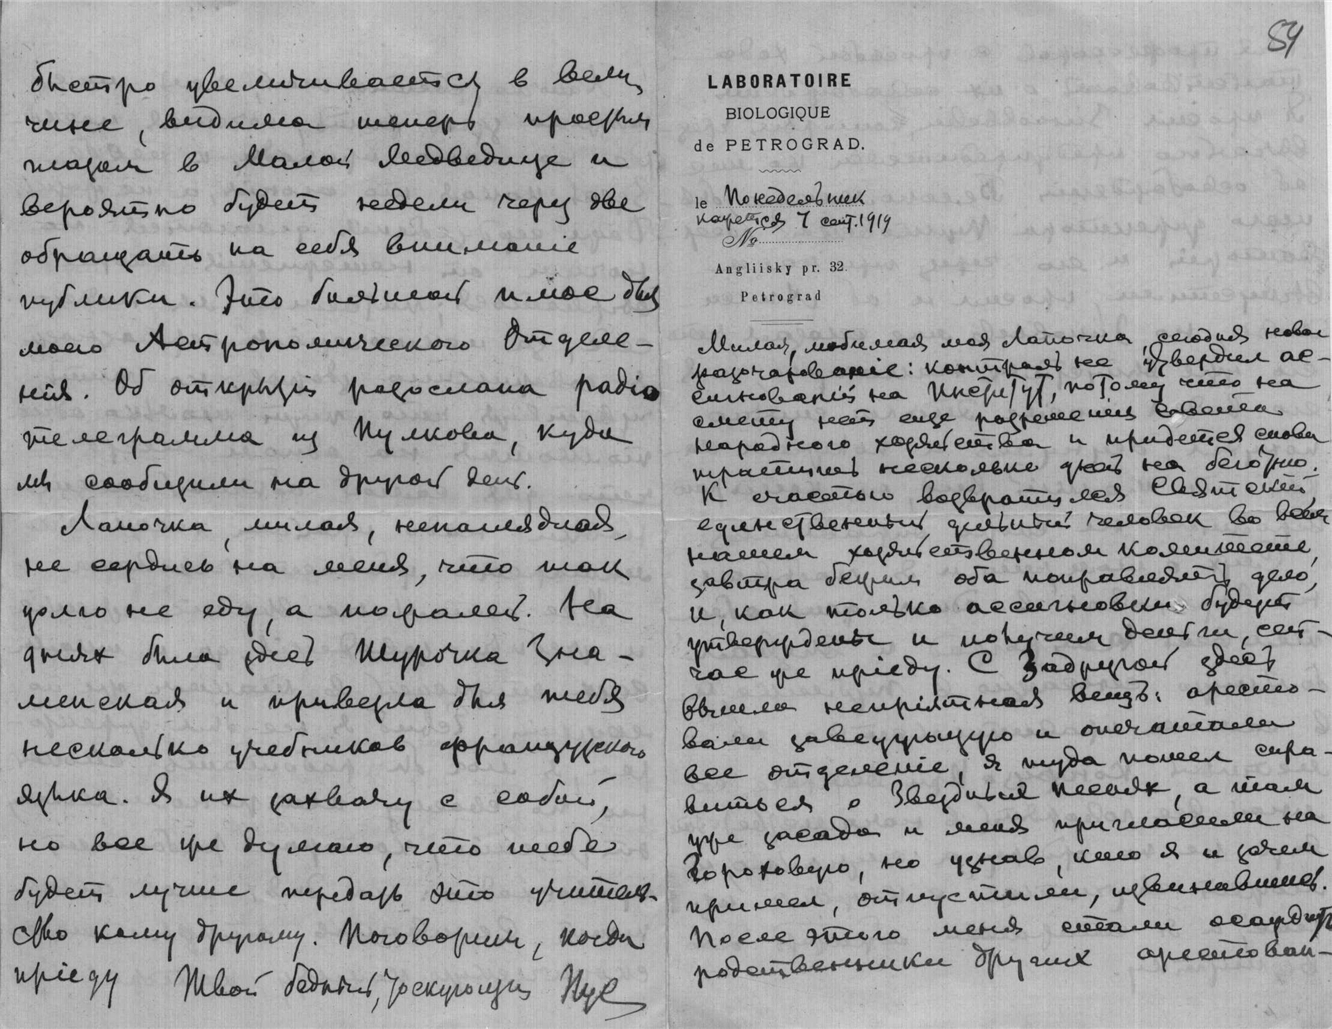 быстро увеличивается в вели
чине, видима теперь простым
глазом в Малой Медведице и
вероятно будет недели через две
обращать на себя внимание
публики. Это большой плюс для
моего Астрономического Отделе-
ния. Об открытіи разослана радіо
телеграмма из Пулкова, куда
мы сообщили на другой день.
Лапочка, милая, ненаглядная,
не сердись на меня, что так
долго не еду, а пожалей. На
днях была здесь Шурочка Зна-
менская и привезла для тебя
несколько учебников французского
языка. Я их захвачу с собой,
но все же думаю, что тебе
будет лучше передать это учитель-
ство кому другому. Поговорим, когда
пріеду Твой бедный, тоскующий
84
LABORATOIRE
BIOLOGIQUE
de PETROGRAD.
le Понедельник
кажется 7 сент. 1919
№
Angliisky pr. 32.
Petrograd
Милая, любимая моя Лапочка, сегодня новое
разочарованіе: контроль не утвердил ас-
сигнованій на Институт, потому что на
смету нет еще разрешенія Совета
народного хозяйства и придется снова
тратить несколько дней на беготню.
К счастью возвратился Святский,
единственный дельный человек во всем
нашем хозяйственном комитете,
завтра бежим оба поправлять дело,
и, как только ассигновки будут
утверждены и получим деньги, сей-
час же пріеду. С Задругой здесь
вышла непріятная вещь: аресто-
вали заведующую и опечатали
все отделеніе, я туда пошел спра-
виться о Звездных песнях, а там
уже засада и меня пригласили на
Гороховую, но узнав, кто я и зачем
пришел, отпустили, извинившись.
После этого меня стали осаждать
родственники других арестован-